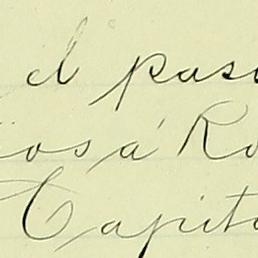 el pas
ios á Ro
Capit